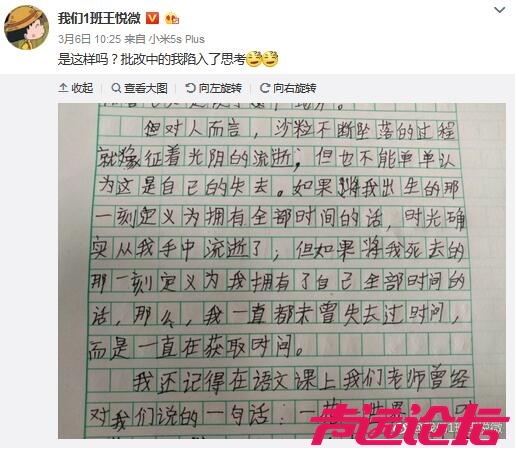 我们1班王悦微
3月6日 10:25 来自 小米5s Plus
是这样吗？批改中的我陷入了思考
收起 查看大图 向左旋转 向右旋转
但对人而言，沙粒不断坠落的过程
就像征着光阴的流逝；但也不能单单认
为这是自己的失去。如果将我出生的那
一刻定义为拥有全部时间的话，时光确
实从我手中流逝了，但如果将我死去的
那一刻定义为我拥有了自己全部时间的
话，那么，我一直都未曾失去过时间，
而是一直在获取时间。
我还记得在语文课上我们老师曾经
对我们说的一句话：一
声远论坛